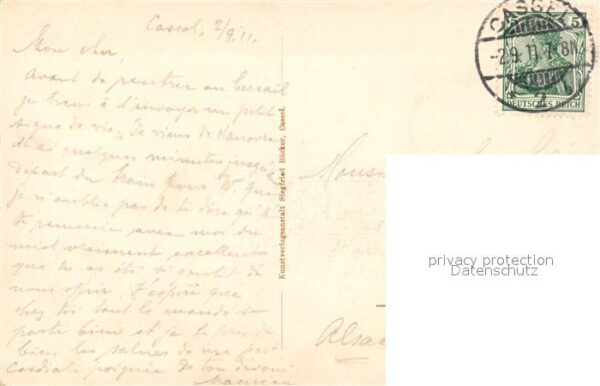 Cassel, 2/9.11.
Mon cher,
Avant de rentrer au bercail
je tiens à t'envoyer un petit
signe de vie. Je viens de Hanovre
et ai quelques minutes jusqu'au
départ du train pour
je n'oublie pas de te dire qu'
te remercie avec moi du
miel vraiment excellent
que tu as été si gentil de
nous offrir. J'espère que
chez toi tout le monde se
porte bien et je te prie de
bien les saluer de ma part
Cordiale poignée de ton dévoué
Maurice
Kunstverlagsanstalt Siegfried Bäcker, Cassel.
CASSEL
-2.9.11.7-8N.
2
5
DEUTSCHES REICH
Monsieur
Alsace
privacy protection
Datenschutz